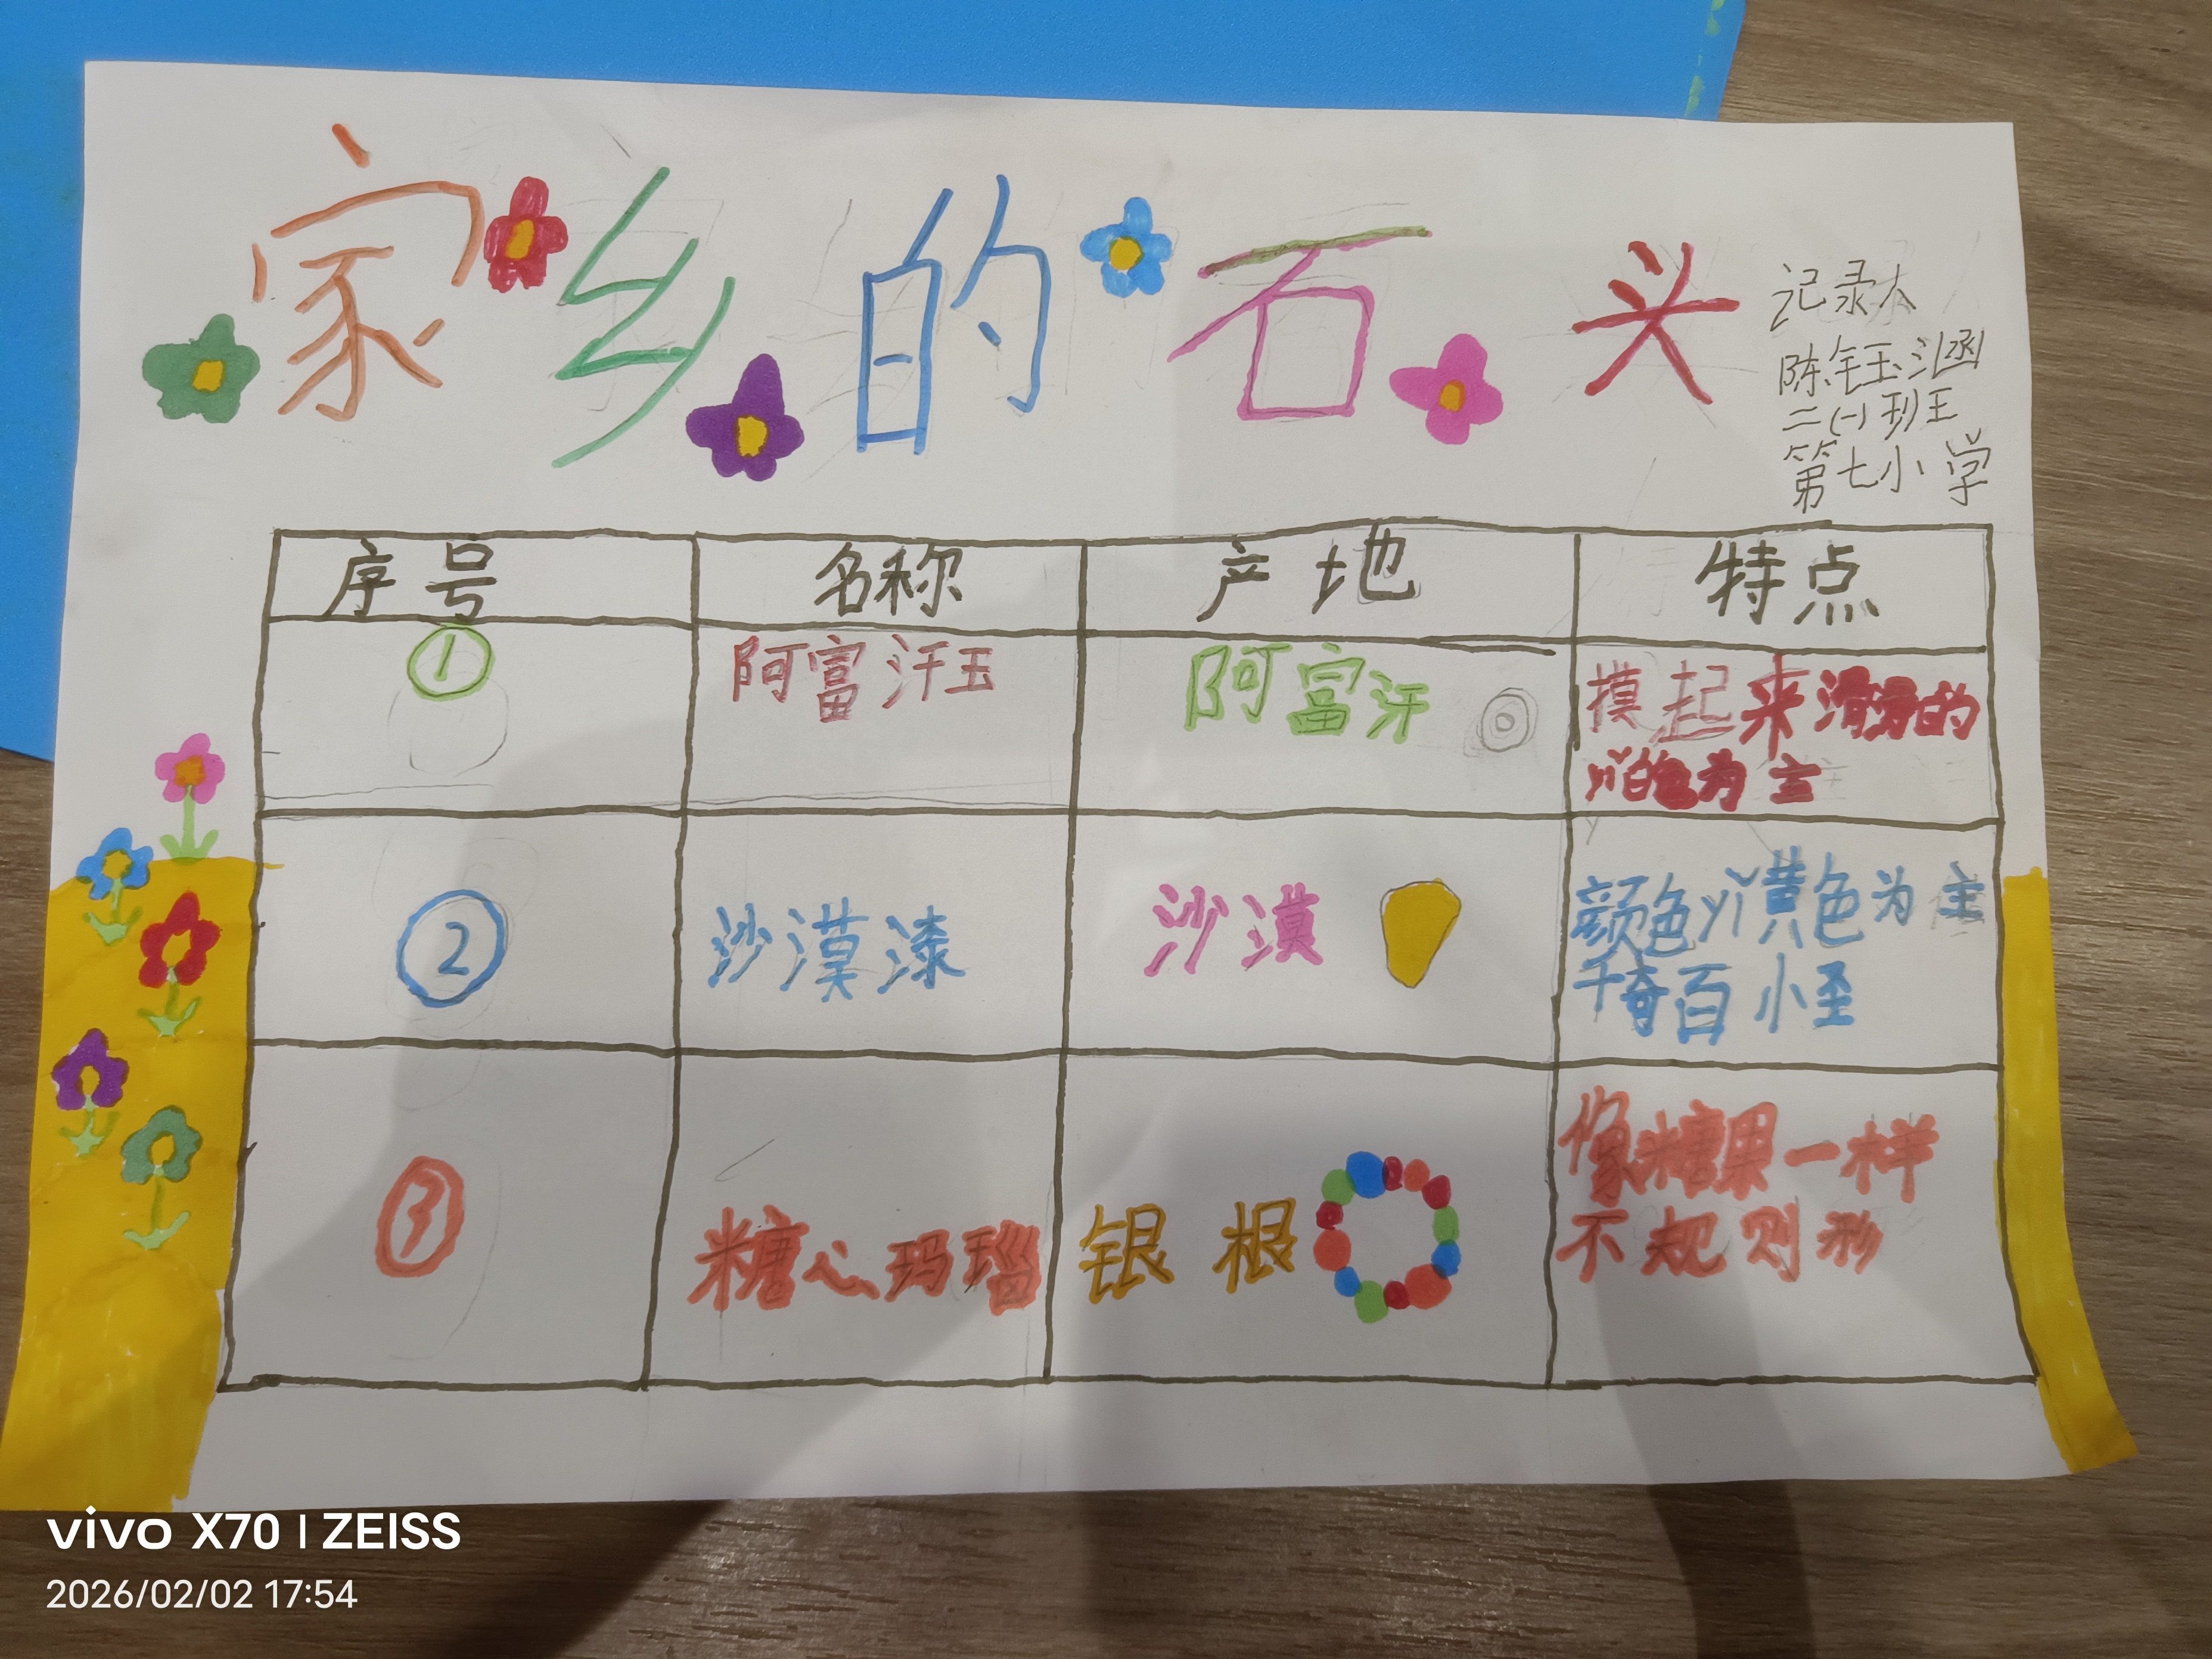 家乡的石头
记录人
陈钰涵
二(一)班王
第七小学
序号 名称 产地 特点
① 阿富汗玉 阿富汗 摸起来滑滑的
以白色为主
② 沙漠漆 沙漠 颜色以黄色为主
千奇百怪
③ 糖心玛瑙 银根 像糖果一样
不规则形
vivo X70 | ZEISS
2026/02/02 17:54